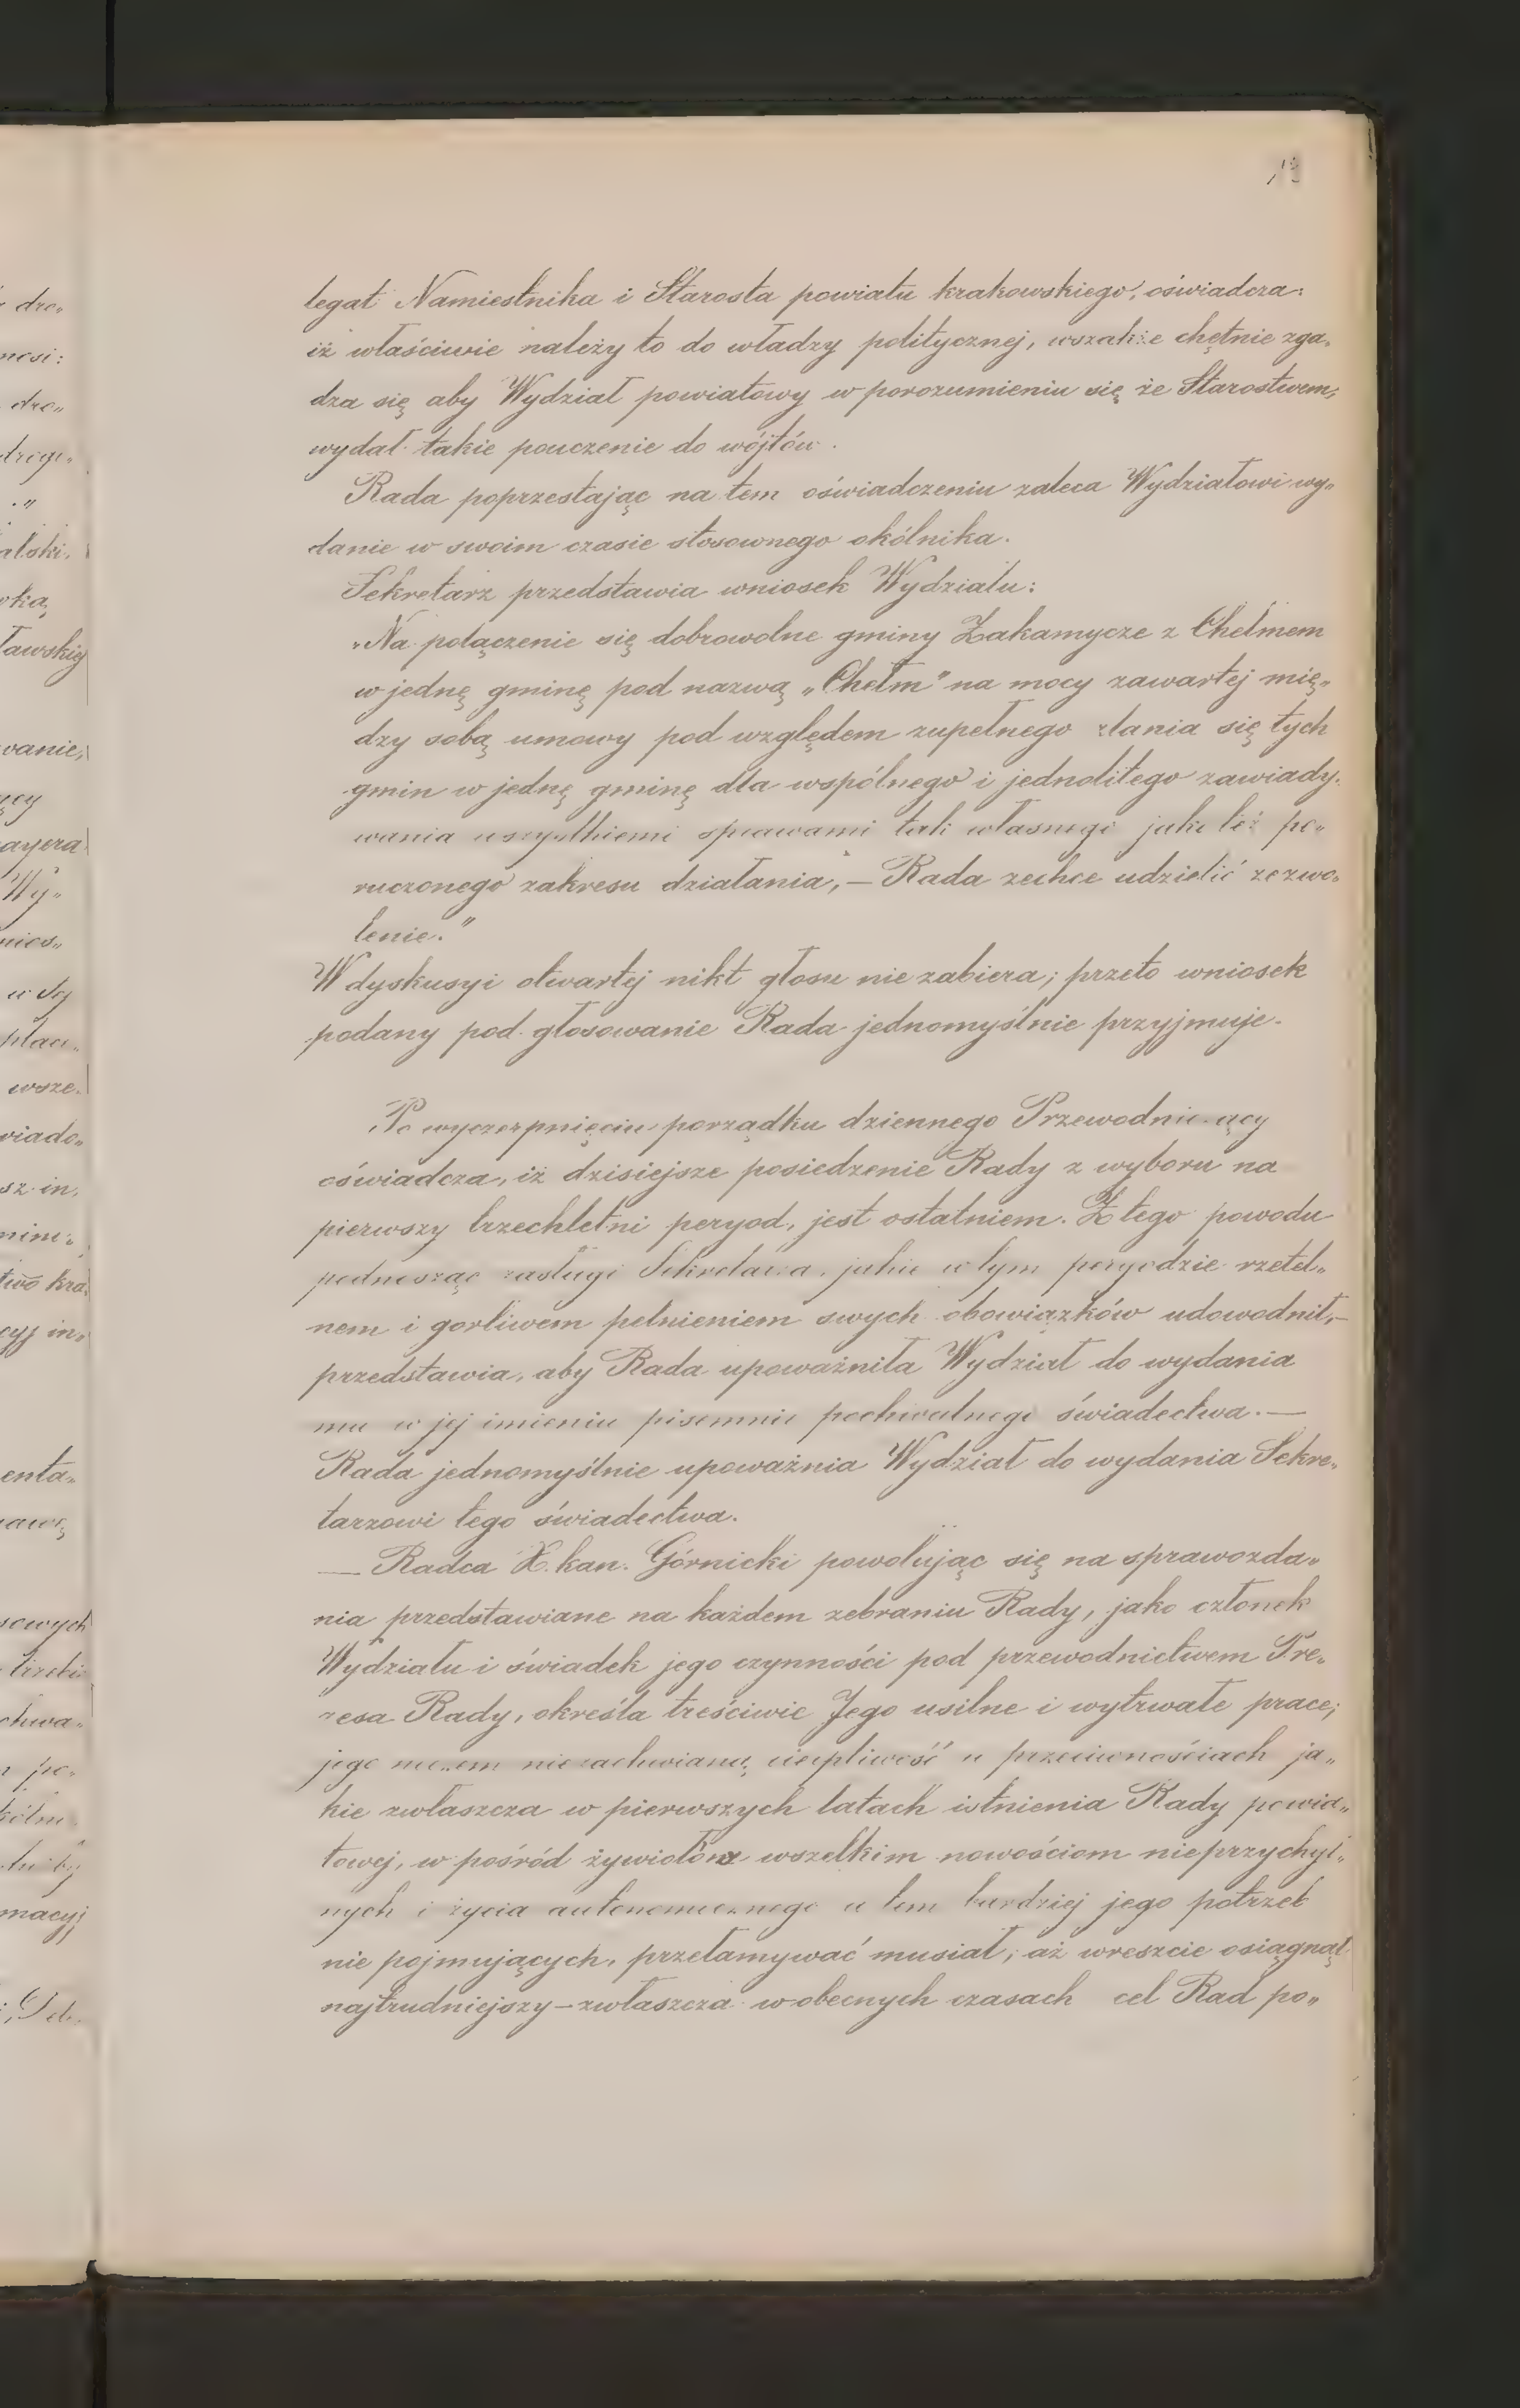 19
legat Namiestnika i Starosta powiatu krakowskiego, oświadcza:
iż właściwie należy to do władzy politycznej, wszakże chętnie zga„
dza się aby Wydział powiatowy w porozumieniu się ze Starostwem,
wydał takie pouczenie do wójtów.
Rada poprzestając na tem oświadczeniu zaleca Wydziałowi wy„
danie w swoim czasie stosownego okólnika.
Sekretarz przedstawia wniosek Wydziału:
„Na połączenie się dobrowolne gminy Zakamycze z Chełmem
w jednę gminę pod nazwą „Chełm" na mocy zawartej mię„
dzy sobą umowy pod względem zupełnego zlania się tych
gmin w jednę gminę dla wspólnego i jednolitego zawiady„
wania wszystkiemi sprawami tak własnego jako też po„
ruczonego zakresu działania, — Rada zechce udzielić zezwo„
lenie."
W dyskusyi otwartej nikt głosu nie zabiera; przeto wniosek
podany pod głosowanie Rada jednomyślnie przyjmuje.
Po wyczerpnięciu porządku dziennego Przewodniczący
oświadcza, iż dzisiejsze posiedzenie Rady z wyboru na
pierwszy trzechletni peryod, jest ostatniem. Z tego powodu
podnosząc zasługi Sekretarza, jakie w tym peryodzie rzetel„
nem i gorliwem pełnieniem swych obowiązków udowodnił, —
przedstawia, aby Rada upoważniła Wydział do wydania
mu w jej imieniu pisemnie pochwalnego świadectwa. —
Rada jednomyślnie upoważnia Wydział do wydania Sekre„
tarzowi tego świadectwa.
— Radca X. kan. Górnicki powołując się na sprawozda„
nia przedstawiane na każdem zebraniu Rady, jako członek
Wydziału i świadek jego czynności pod przewodnictwem Pre„
zesa Rady, określa treściwie Jego usilne i wytrwałe prace;
jego niczem niezachwianą cierpliwość w przeciwnościach ja„
kie zwłaszcza w pierwszych latach istnienia Rady powia„
towej, w pośród żywiołów wszelkim nowościom nieprzychyl„
nych i życia autonomicznego a tem bardziej jego potrzeb
nie pojmujących, przełamywać musiał, aż wreszcie osiągnął
najtrudniejszy — zwłaszcza w obecnych czasach cel Rad po„